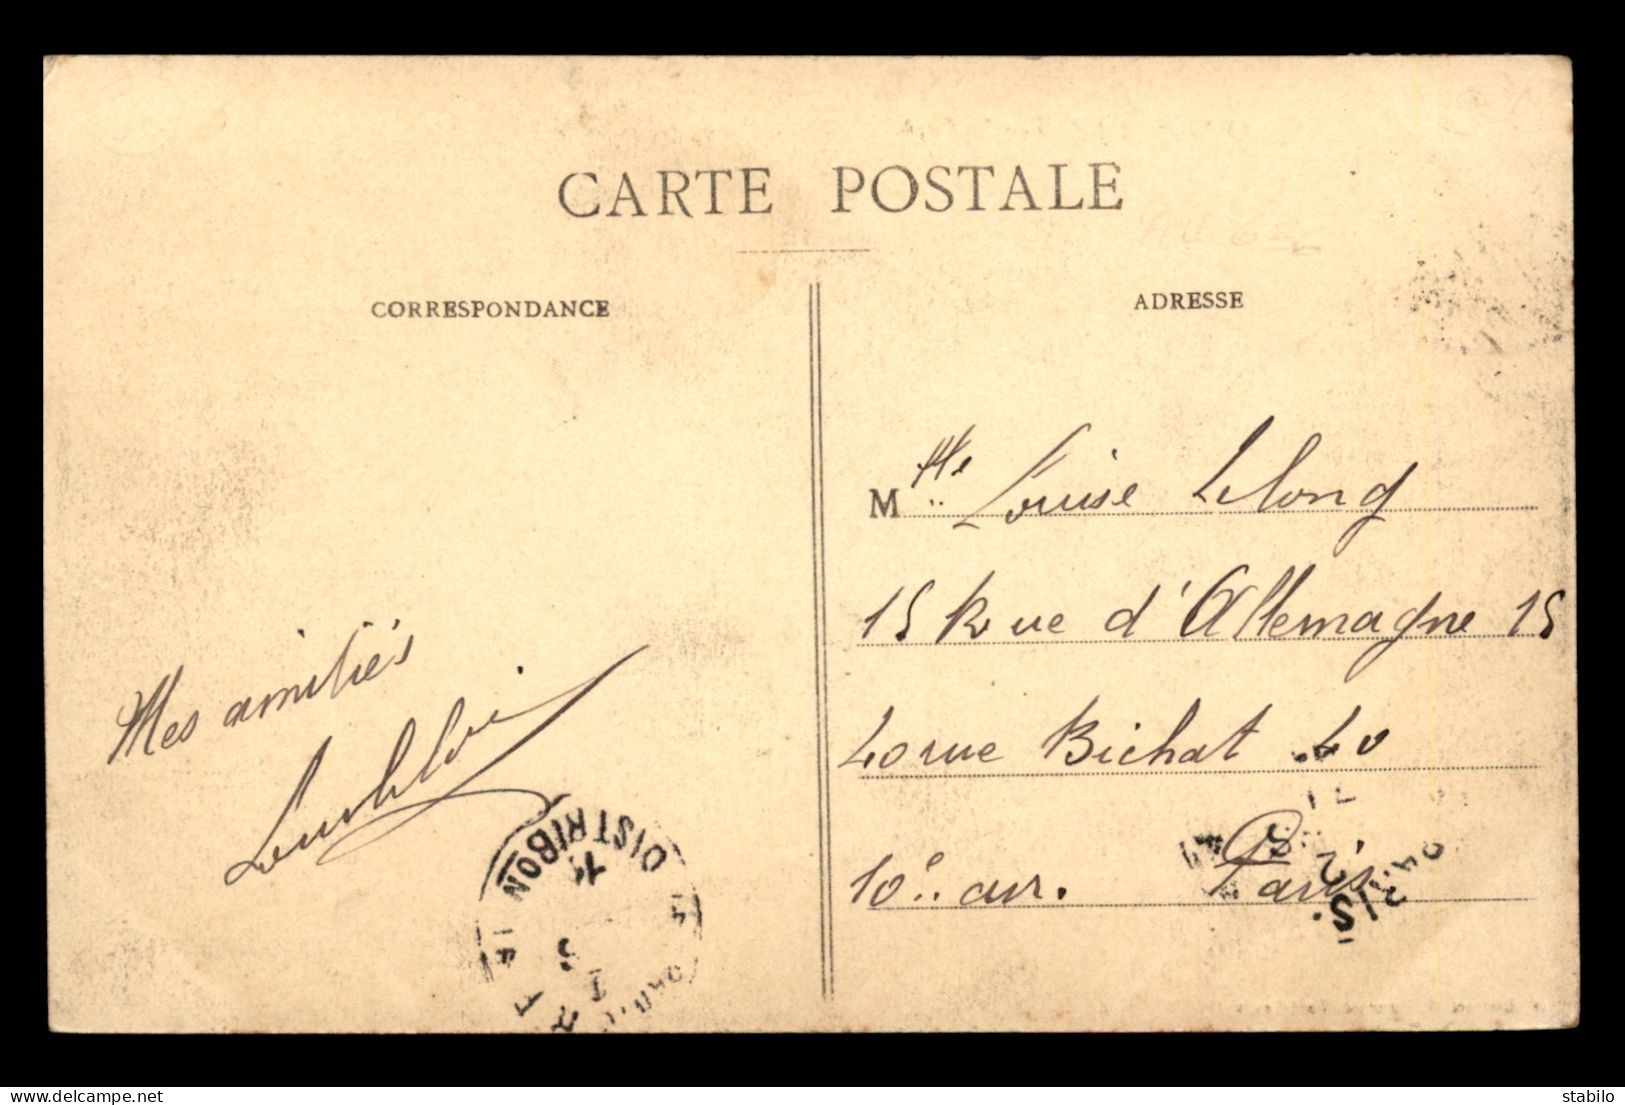 CARTE POSTALE
CORRESPONDANCE
ADRESSE
Mlle Louise Lelong
15 Rue d'Allemagne 15
40 rue Bichat 40
10e arr. Paris
Mes amitiés
DISTRIBON
delcampe.net
stabilo